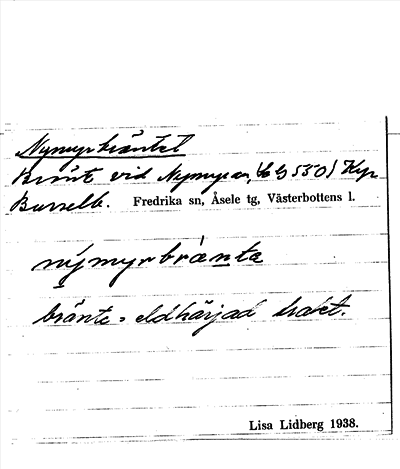 Nymyrbräntet
Bränt vid Nymyran, (LL 550) Kyr
Burselb. Fredrika sn, Åsele tg, Västerbottens l.
nýmyrbrànte
bränte = eldhärjad trakt.
Lisa Lidberg 1938.